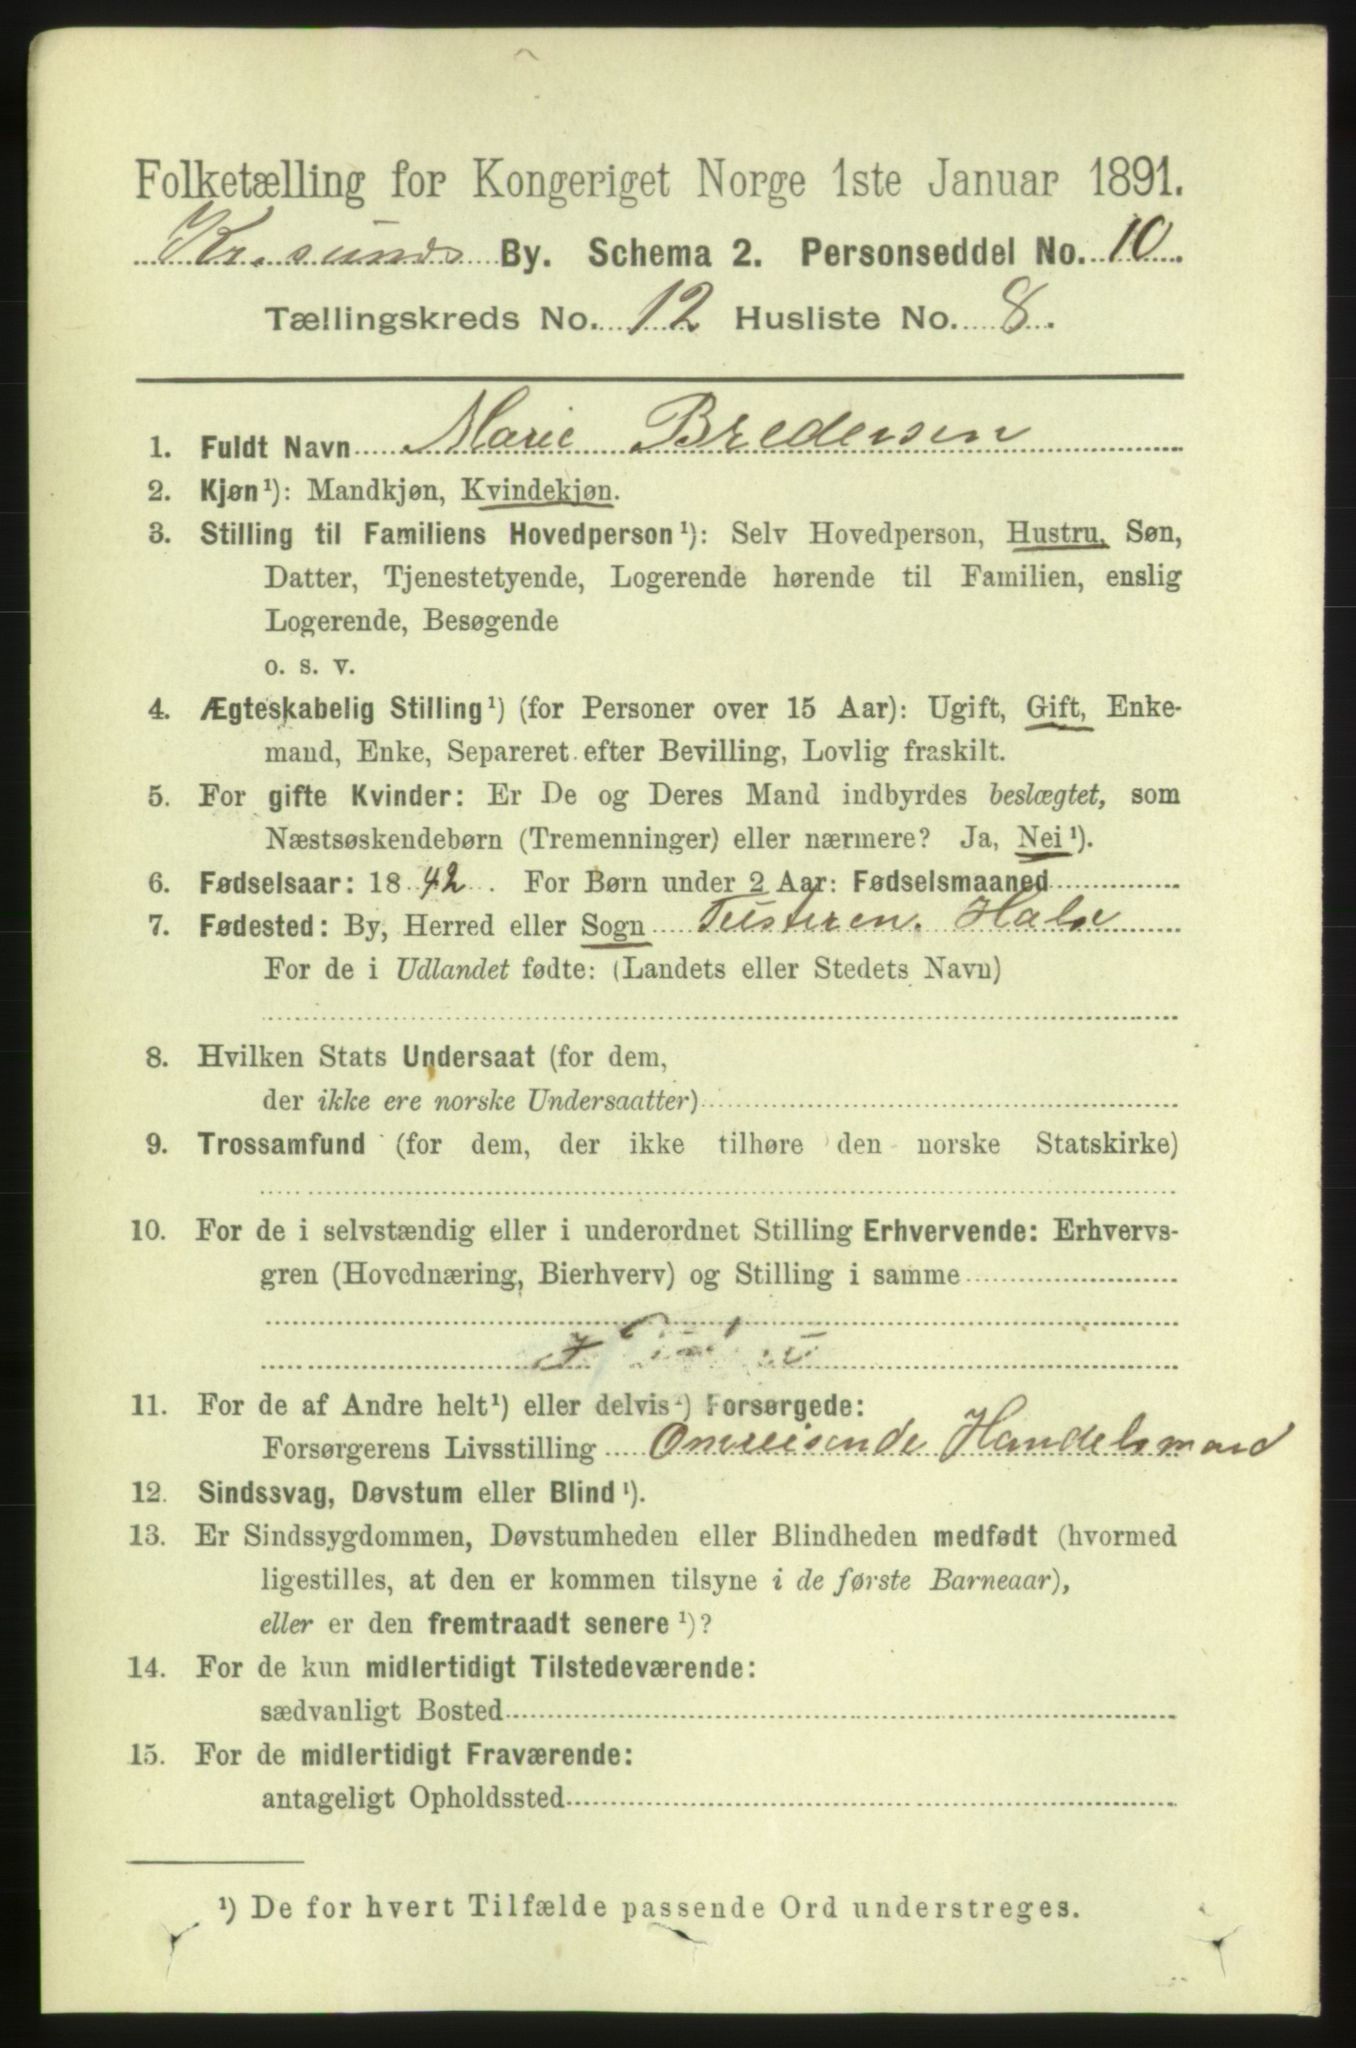 Folketælling for Kongeriget Norge 1ste Januar 1891.
Kr.sunds By. Schema 2. Personseddel No. 10.
Tællingskreds No. 12 Husliste No. 8.
1. Fuldt Navn Marie Bredersen
2. Kjøn¹): Mandkjøn, Kvindekjøn.
3. Stilling til Familiens Hovedperson¹): Selv Hovedperson, Hustru, Søn,
Datter, Tjenestetyende, Logerende hørende til Familien, enslig
Logerende, Besøgende
o. s. v.
4. Ægteskabelig Stilling¹) (for Personer over 15 Aar): Ugift, Gift, Enke-
mand, Enke, Separeret efter Bevilling, Lovlig fraskilt.
5. For gifte Kvinder: Er De og Deres Mand indbyrdes beslægtet, som
Næstsøskendebørn (Tremenninger) eller nærmere? Ja, Nei¹).
6. Fødselsaar: 1842. For Børn under 2 Aar: Fødselsmaaned
7. Fødested: By, Herred eller Sogn Tusteren. Halse
For de i Udlandet fødte: (Landets eller Stedets Navn)
8. Hvilken Stats Undersaat (for dem,
der ikke ere norske Undersaatter)
9. Trossamfund (for dem, der ikke tilhøre den norske Statskirke)
10. For de i selvstændig eller i underordnet Stilling Erhvervende: Erhvervs-
gren (Hovednæring, Bierhverv) og Stilling i samme
11. For de af Andre helt¹) eller delvis¹) Forsørgede:
Forsørgerens Livsstilling Omreisende Handelsmand
12. Sindssvag, Døvstum eller Blind¹).
13. Er Sindssygdommen, Døvstumheden eller Blindheden medfødt (hvormed
ligestilles, at den er kommen tilsyne i de første Barneaar),
eller er den fremtraadt senere¹)?
14. For de kun midlertidigt Tilstedeværende:
sædvanligt Bosted
15. For de midlertidigt Fraværende:
antageligt Opholdssted
¹) De for hvert Tilfælde passende Ord understreges.